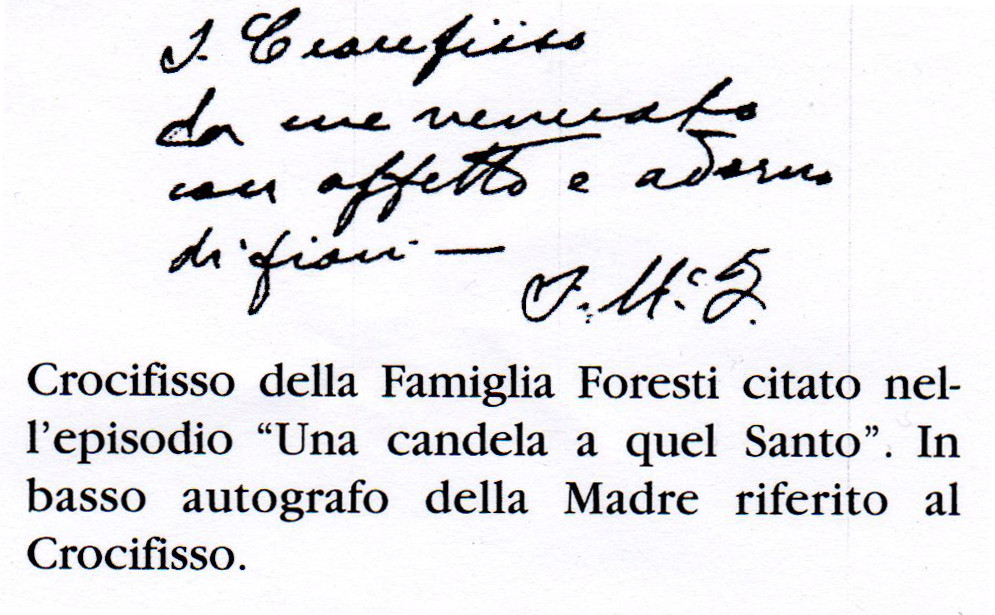 S. Crocefisso
da me venerato
con affetto e adorno
di fiori —
S. M. F.
Crocifisso della Famiglia Foresti citato nel-
l'episodio “Una candela a quel Santo”. In
basso autografo della Madre riferito al
Crocifisso.